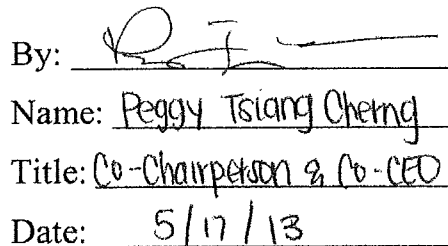 By:
Name: Peggy Tsiang Cherng
Title: Co-Chairperson & Co-CEO
Date: 5/17/13